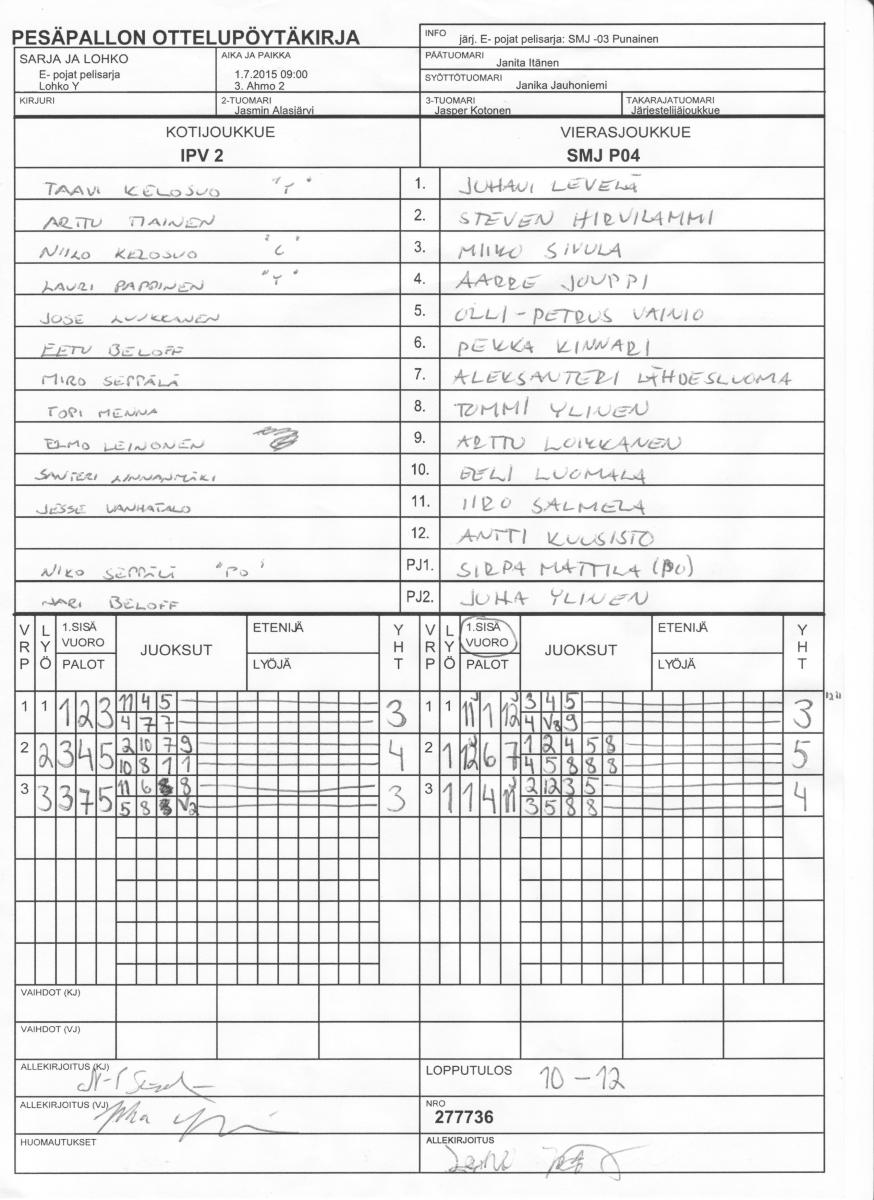 PESÄPALLON OTTELUPÖYTÄKIRJA
INFO järj. E- pojat pelisarja: SMJ -03 Punainen
SARJA JA LOHKO
E- pojat pelisarja
Lohko Y
AIKA JA PAIKKA
1.7.2015 09:00
3. Ahmo 2
PÄÄTUOMARI
Janita Itänen
SYÖTTÖTUOMARI
Janika Jauhoniemi
KIRJURI
2-TUOMARI
Jasmin Alasjärvi
3-TUOMARI
Jasper Kotonen
TAKARAJATUOMARI
Järjestelijäjoukkue
KOTIJOUKKUE
IPV 2
VIERASJOUKKUE
SMJ P04
TAAVI KELOSUO "T" 1. JUHAVI LEVELÄ
ARTTU TIAINEN 2. STEVEN HIRVILAMMI
NIILO KELOSUO "C" 3. MIIKO SIVULA
LAURI PAPPINEN "T" 4. AARRE JOUPPI
JOSE LUUKKANEN 5. OLLI-PETRUS VAINIO
EETU BELOFF 6. PEKKA KINNARI
MIRO SEPPÄLÄ 7. ALEKSANTERI LÄHDESLUOMA
TOPI MENNA 8. TOMMI YLINEN
ELMO LEINONEN 9. ARTTU LOIKKANEN
SANTERI LINNANMÄKI 10. EELI LUOMALA
JESSE VANHATALO 11. IIRO SALMELA
12. ANTTI KUUSISTO
NIKO SEPPÄLÄ "PO" PJ1. SIRPA MATTILA (PO)
BELOFF PJ2. JUHA YLINEN
VRP LYÖ 1.SISÄ VUORO PALOT JUOKSUT ETENIJÄ LYÖJÄ YHT VRP LYÖ 1.SISÄ VUORO PALOT JUOKSUT ETENIJÄ LYÖJÄ YHT
1 1 1 2 3 11 4 5 3 1 1 11 1 12 3 4 5 3
4 7 7 4 V3 9
2 2 3 4 5 2 10 7 9 4 2 1 12 6 7 1 2 4 5 8 5
10 8 1 1 4 5 8 8 8
3 3 3 7 5 11 6 8 3 3 1 1 4 11 2 12 3 5 4
5 8 V2 3 5 8 8
VAIHDOT (KJ)
VAIHDOT (VJ)
ALLEKIRJOITUS (KJ)
LOPPUTULOS 10 – 12
ALLEKIRJOITUS (VJ)
NRO
277736
HUOMAUTUKSET
ALLEKIRJOITUS